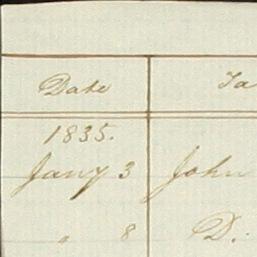 Date
1835.
Jany 3 John
" 8 D.